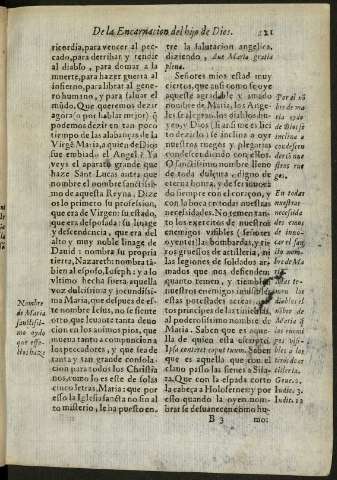 De la Encarnacion del hijo de Dios.
121
ricordia, para vencer al pec-
cado, para derribar y rendir
al diablo, para domar a la
muerte, para hazer guerra al
infierno, para librar al gene-
ro humano, y para saluar el
mũdo. Que queremos dezir
agora (o por hablar mejor) q̃
podemos dezir en tan poco
tiempo de las alabanças de la
Virgẽ Maria, a quien de Dios
fue embiado el Angel? Ya
veys el aparato grande que
haze Sant Lucas antes que
nombre el nombre sanctissi-
mo de aquesta Reyna. Dize
os lo primero su profession,
que era de Virgen: su estado,
que era desposada: su linage
y descendencia, que era del
alto y muy noble linage de
Dauid: nombra su propria
tierra, Nazareth: nombra tã-
bien al esposo, Ioseph: y a lo
vltimo hecha fuera aquella
voz dulcissima y jocundissi-
ma Maria, que despues de es-
te nombre Iesus, no se siente
otro, que leuante tanta deuo
cion en los animos pios, que
mueua tanto a compunction a
los peccadores, y que sea de
tanta y san grande consola-
cion para todos los Christia
nos, como lo es este de solas
cinco letras, Maria: que por
esso la Iglesia sancta no sin al
to misterio, le ha puesto en
Nombre
de Maria
sanctissi-
mo
que effe-
ctos haze
tre la salutacion angelica,
diziendo, Aue Maria gratia
plena.
Señores mios estad muy
ciertos, que assi como se oye
aqueste agradable y amado
nombre de Maria, los Ange-
les se alegran, los diablos hu-
yen, y Dios (si assi me es lici
to dezir) se inclina a oyr
nuestros ruegos y plegarias
condescendiendo con ellos.
O sanctissimo nombre lleno
de toda dulçura, digno de
eterna honra, y de ser inuoca
do siempre con el coraçon, y
con la boca en todas nuestras
necessidades. No temen tan-
to los exercitos de nuestros
enemigos visibles (señores
oyentes) las bombardas, y ti-
ros gruessos de artilleria, ni
las legiones de soldados ar-
mados que nos defienden:
quanto temen, y tiemblan
nuestros enemigos inuisibles
estas potestades aereas, y es-
tos principes de las tinieblas,
al poderosissimo nombre de
Maria. Saben que es aque-
lla de quien esta escripto,
Ipsa conteret caput tuum. Saben
que es aquella que con el
clauo passo las sienes a Sisa-
ra. Que con la espada corto
la cabeça a Holofernes: y por
esto quando la oyen nom-
brar se desuanecen como hu-
Por el nõ
bre de ma
ria oydo
de Dios se
inclina a
condescen
der a nue
stros rue
gos.
En todas
nuestras
necessida
des emos
de inuo-
car el san
cto nom-
bre de Ma
ria.
Mas te-
men los
diablos el
nõbre de
Maria q̃
los enemi
gos visi-
bles a los
Gene. 3.
Iudic. 4.
Iudit. 13
B 3
mo: